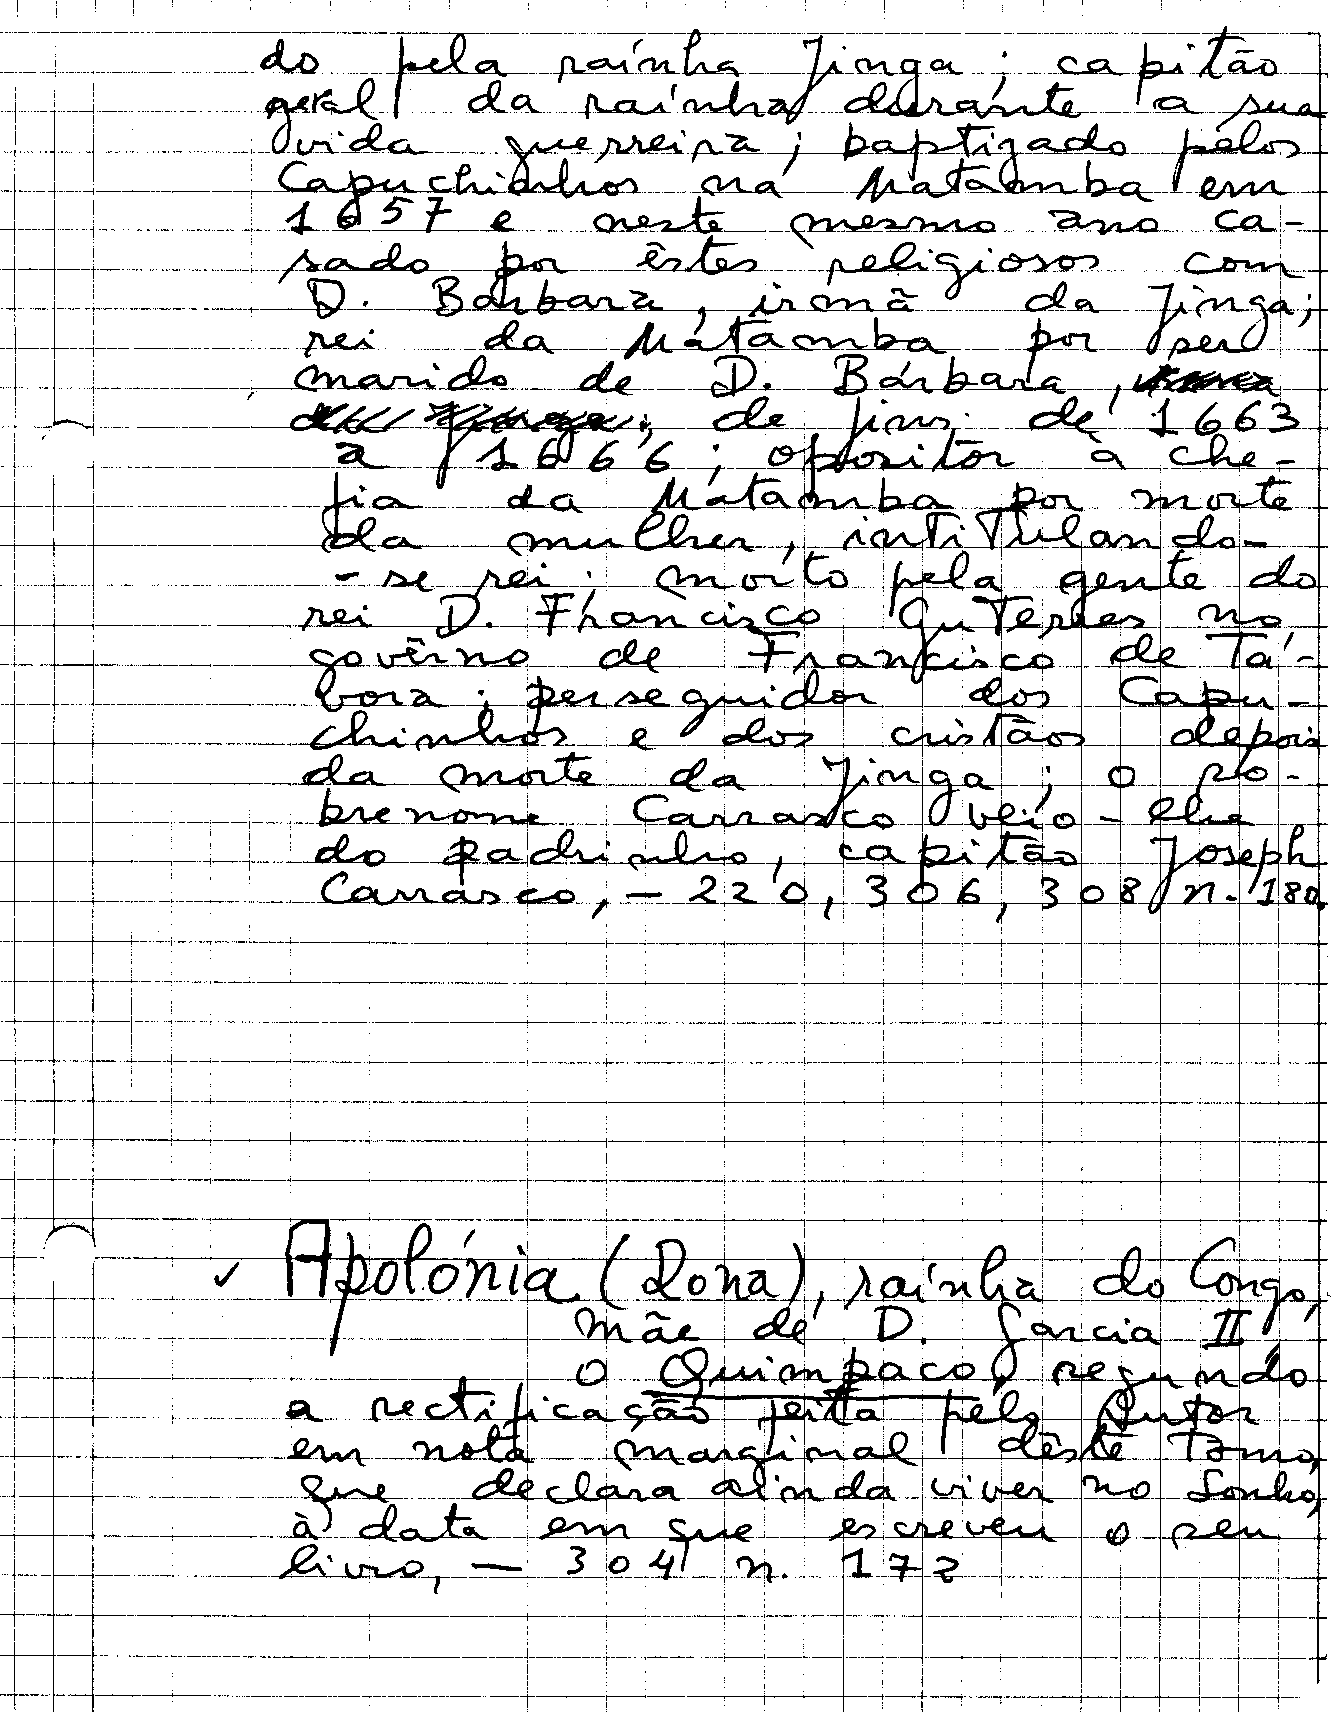 do pela raínha Jinga; capitão
geral da raínha durante a sua
vida guerreira; baptizado pelos
Capuchinhos na Matamba em
1657 e neste mesmo ano ca-
sado por êstes religiosos com
D. Bárbara, irmã da Jinga;
rei da Matamba por ser
marido de D. Bárbara,
de fins de 1663
a 1666; opositor à che-
fia da Matamba por morte
da mulher, intitulando-
-se rei; morto pela gente do
rei D. Francisco Guterres no
govêrno de Francisco de Tá-
vora; perseguidor dos Capu-
chinhos e dos cristãos depois
da morte da Jinga; o so-
brenome Carrasco veio-lhe
do padrinho, capitão Joseph
Carrasco, - 220, 306, 308 n. 180.
✓ Apolónia (Dona), raínha do Congo,
mãe de D. Garcia II,
o Quimpaco, segundo
a rectificação feita pelo Autor
em nota marginal dêste Tomo,
que declara ainda viver no Sonho,
à data em que escreveu o seu
livro, — 304 n. 172